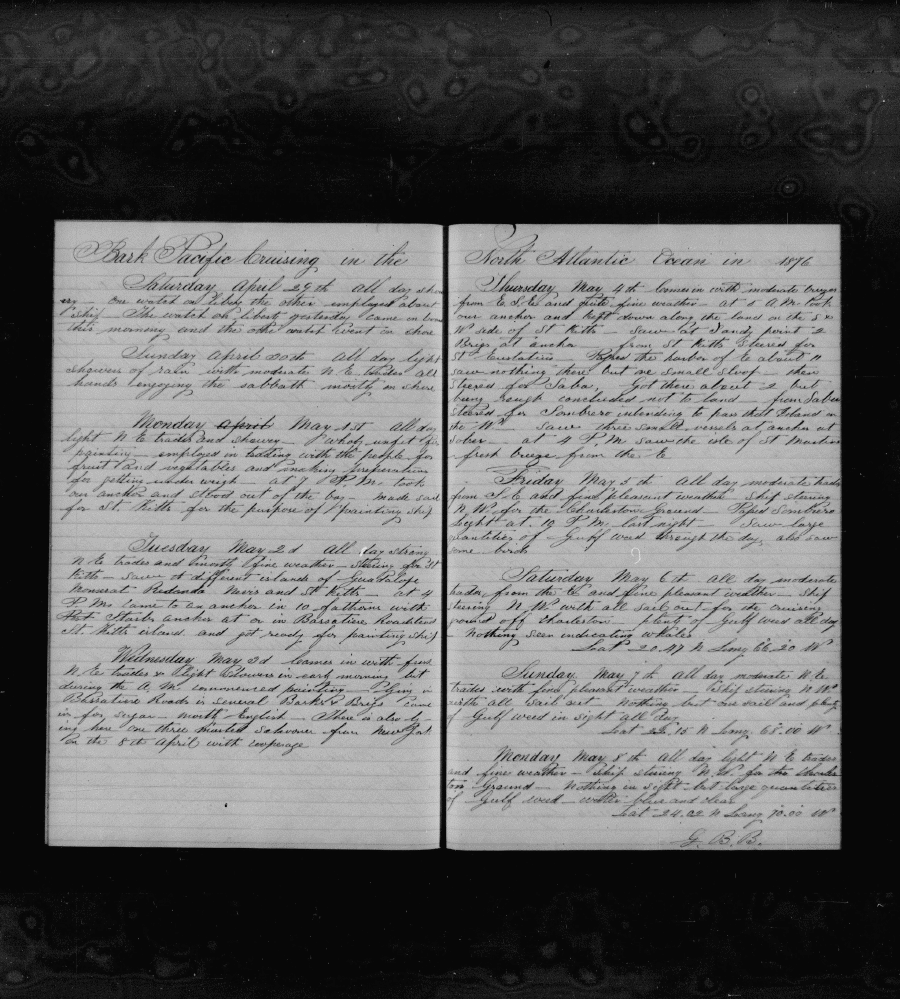 Bark Pacific Cruising in the
Saturday April 29th all day show
ery — one watch on liberty the other employed about
ship The watch on liberty yesterday came on board
this morning and the other watch went on shore
Sunday April 30th all day light
showers of rain with moderate N E trades all
hands engoying the sabbath mostly on shore
Monday April May 1st all day
light N E trades and showery — wholy unfit for
painting — employed in trading with the people for
fruit and vegetables and making preperation
for getting under weigh — at 7 P M. took
our anchor and stood out of the bay — made sail
for St Kitts for the purpose of painting ship
Tuesday May 2d all day strong
N E trades and smooth fine weather — Stering for St
Kitts — saw different islands of Guadalope
Monserat Redanda Nevis and St Kitts — at 4
P M. came to an anchor in 10 fathoms with
Port Starb anchor at or in Bassatire Roadsted
St. Kitts island and got ready for painting ship
Wednesday May 3d comes in with fine
N E trades & light showers in early morning but
during the A. M. commenced painting — lying in
Bassatire Roads is several Barks & Brigs come
in for sugar — mostly English — There is also ly
ing here one three masted schooner from New York
on the 8th April with cooperage
North Atlantic Ocean in 1876
Thursday May 4th comes in with moderate breezes
from E S E and quite fine weather — at 5 A M. took
our anchor and kept down along the land on the S &
W side of St Kitts — saw at Sandy point 2
Brigs at ancho — from St Kitts steered for
St Eustatius Passed the harbor of E about 11
saw nothing there but one small sloop — then
steered for Saba, Got there about 2 but
being rough concluded not to land — from Saba
steered for Sombrero intending to pass that Island on
the W saw three small vessels at anchor at
Saba — at 4 P. M. saw the isle of St Martins
— fresh breeze from the E
Friday May 5th All day moderate trades
from S. E and fine pleasant weather — Ship stering
N W for the Charleston Ground — Passed Sombrero
light at 10 P M last night — Saw large
quantities of Gulf weed through the day also saw
some birds
Saturday May 6th all day moderate
trades from the E and fine pleasant weather — Ship
stering N. W. with all sail out for the cruising
ground off Charleston — plenty of Gulf weed all day
— Nothing seen indicating whales
Lat 20.47 N Long 66.20 W
Sunday May 7th all day moderate N. E.
trades with fine pleasant weather — Ship stering N W
with all sail out — Nothing but one sail and plenty
of Gulf weed in sight all day
Lat 22.15 N Long 68.00 W
Monday May 8th All day light N E trades
and fine weather — Ship stering N. W. for the Charles
ton Ground — Nothing in sight but large quantities
of Gulf weed — water blue and clear
Lat 24.02 N Long 70.00 W
G. B. B.